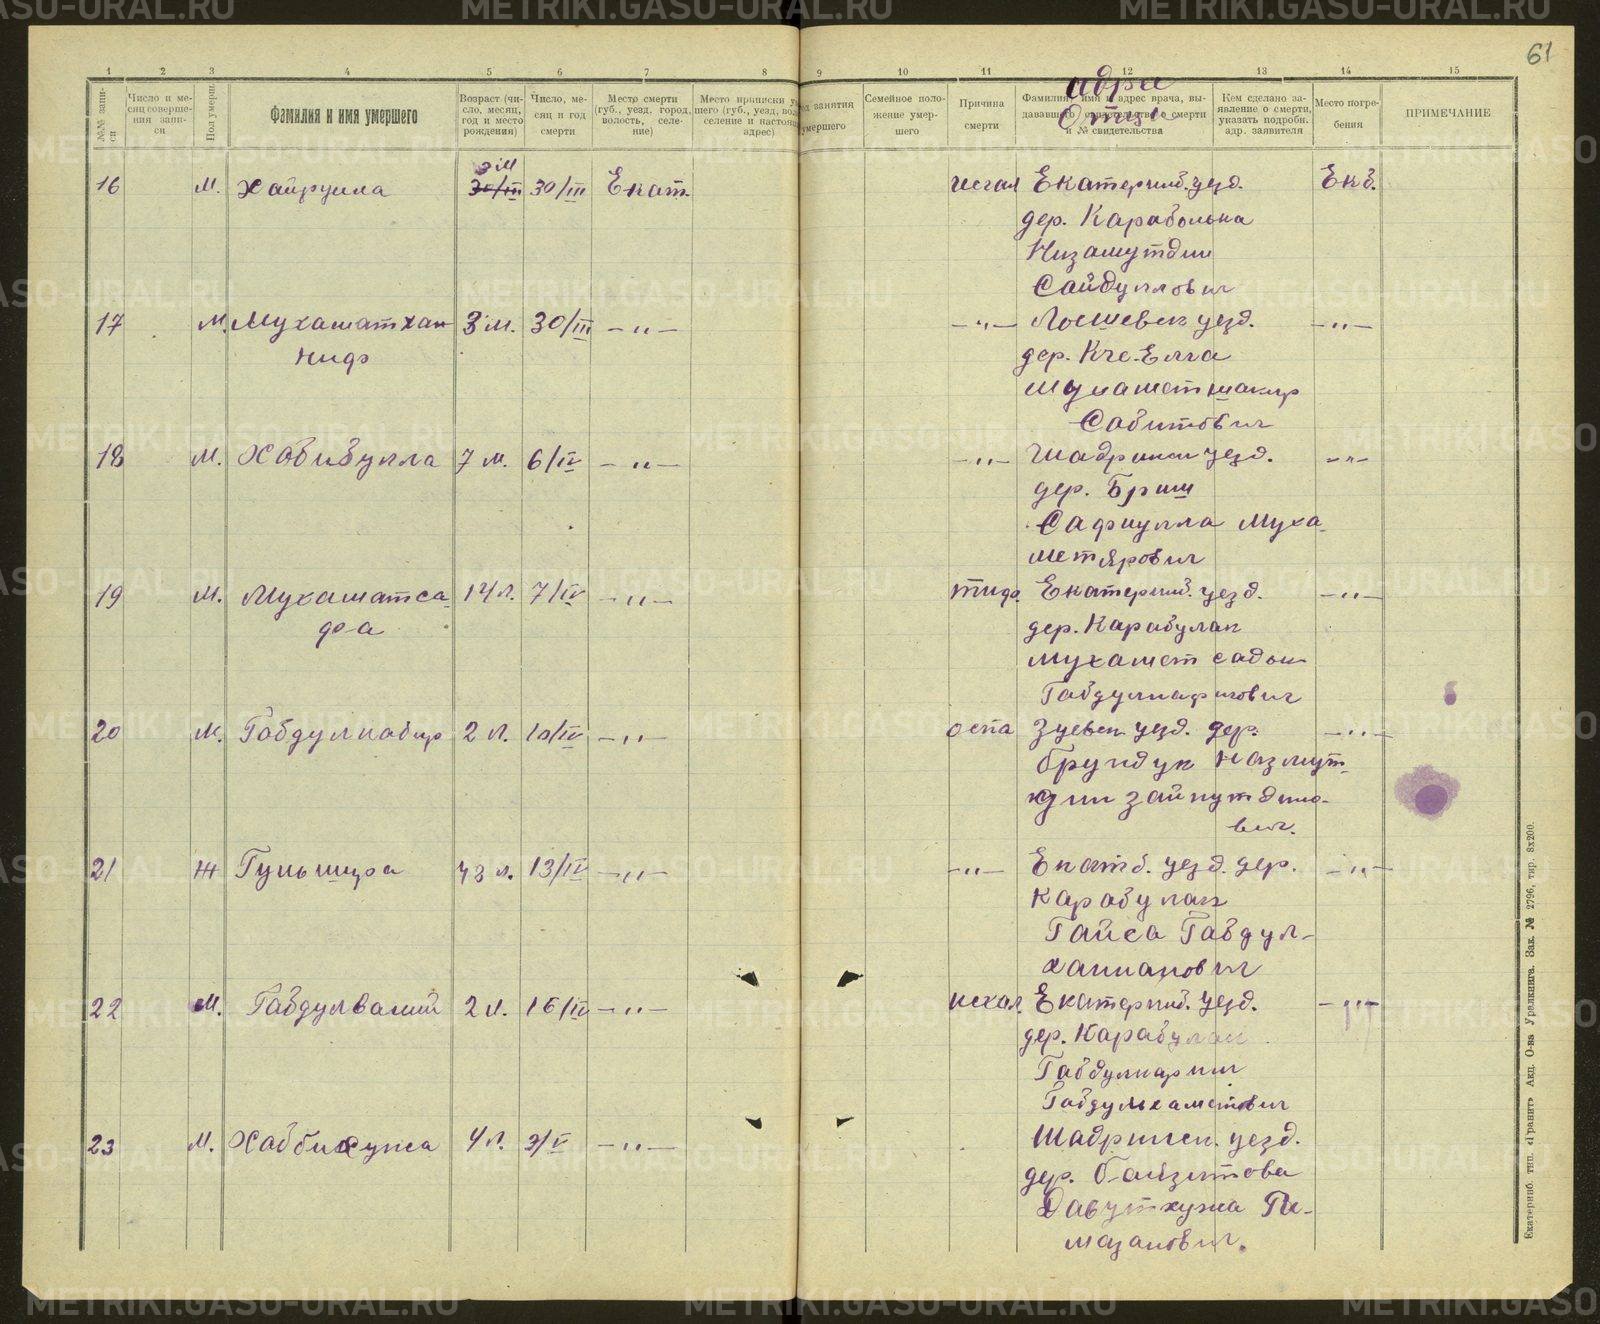 61
1 2 3 4 5 6 7 8 9 10 11 12 13 14 15
№№ записи
Число и месяц совершения записи
Пол умерш.
Фамилия и имя умершего
Возраст (число, месяц, год и место рождения)
Число, месяц и год смерти
Место смерти (губ., уезд, город, волость, селение)
Место приписки
Семейное положение умершего
Причина смерти
Фамилия, имя и адрес врача, выдававшего свидетельство о смерти и № свидетельства
Кем сделано заявление о смерти, указать подробн. адр. заявителя
Место погребения
ПРИМЕЧАНИЕ
адрес
Отца
16 М. Хайрулла 3 м 30/III 30/III Екат. исхал Екатеринб. уезд. Екб.
дер. Караболька
Низамутдин
Сайдуллович
17 М. Мухаматхан 3 м. 30/III —"— —"— уезд. —"—
ниф дер. Кче-Елга
Мухаметшакир
Сабитович
18 М. Хабибулла 7 м. 6/IV —"— —"— Шадринск уезд. —"—
дер. Бриш
Сафиулла Муха-
метярович
19 М. Мухаматса- 14 л. 7/IV —"— тиф. Екатеринб. уезд. —"—
фа дер. Карабулак
Мухамет садык
20 М. Габдулкабир 2 л. 10/IV —"— оспа Зуевск уезд. дер. —"—
Брундук Назмут-
дин Зайнутдино-
вич.
21 Ж 43 л. 13/IV —"— —"— Екатб. уезд. дер. —"—
Карабулак
Гайса Габдул-
ханнанович
22 М. Габдулвалий 2 л. 16/IV —"— исхал. Екатеринб. уезд. —"—
дер. Карабулак
Габдулкарим
Габдульхаметович
23 М. Хаббихужа 4 л. 3/V —"— Шадринск. уезд.
дер. Байзитова
Давутхужа Ги-
мазанович.
Екатеринб. тип. «Гранит» Акц. О-ва Уралкнига. Зак. № 2796, тир. 8х200.
METRIKI.GASO-URAL.RU